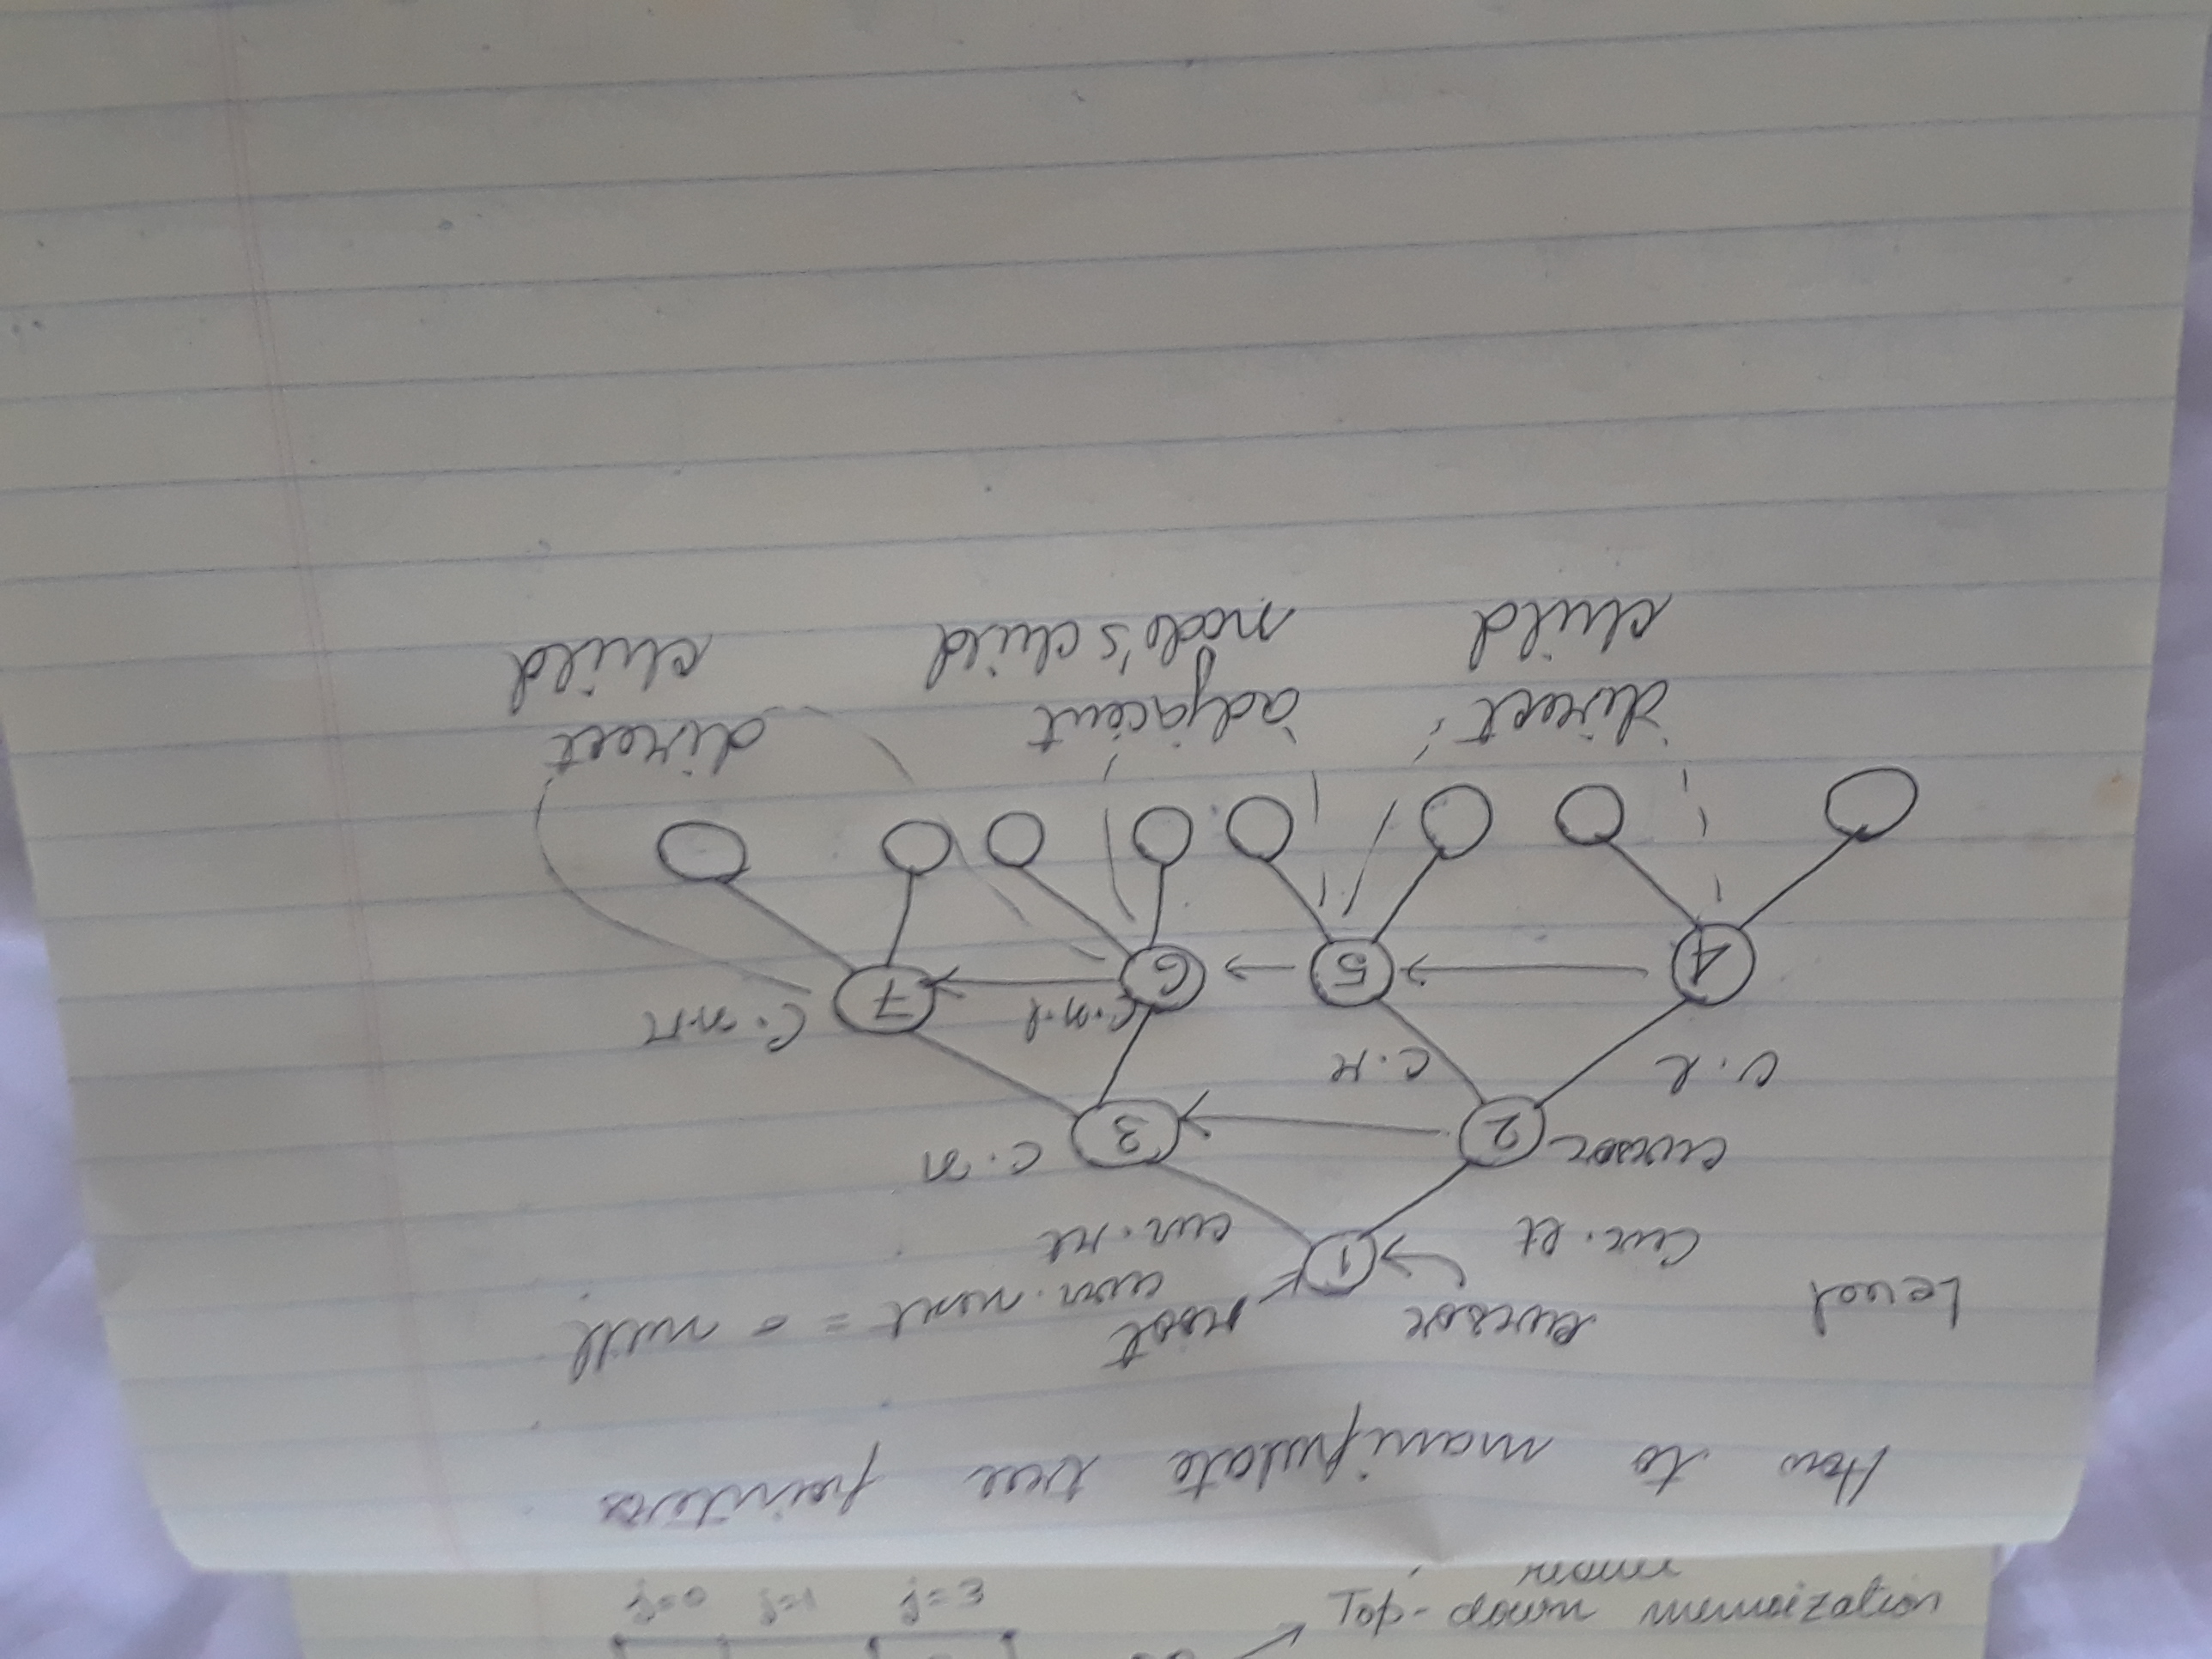 j=0 j=1 j=3
Top-down memoization
How to manipulate tree pointers
Level cursor root
curr.next = null
Cur.lt 1 cur.rt
cursor 2 3 c.n
c.l c.r
4 5 6 c.n.l 7 c.n.r
direct child
adjacent node's child
direct child